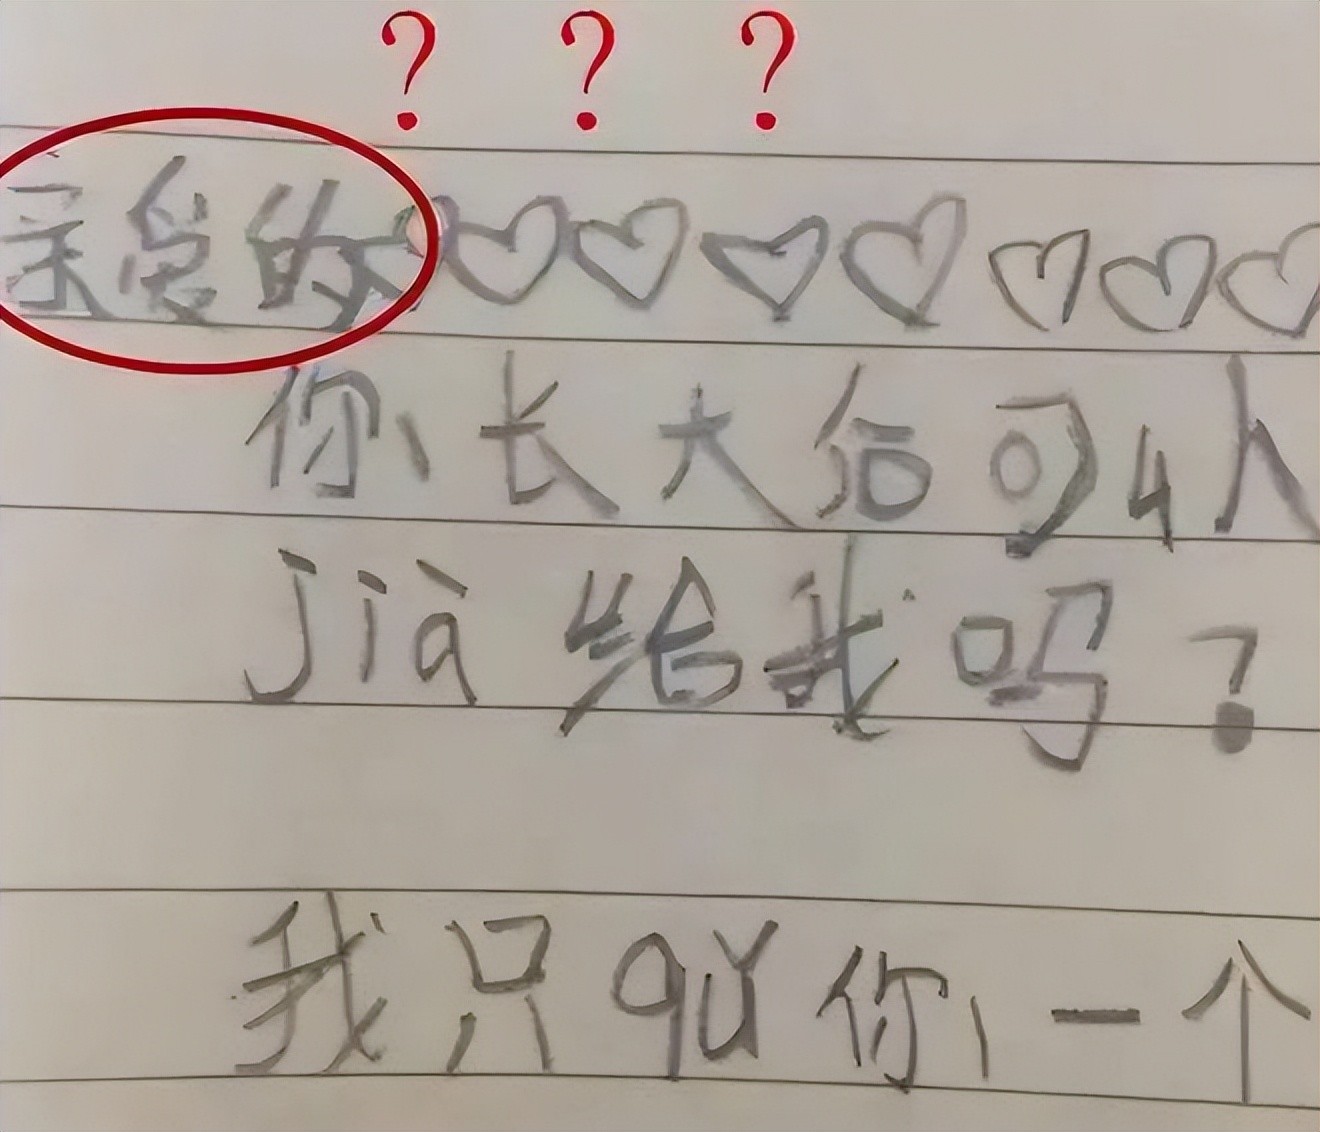 ? ? ?
亲爱的♡♡♡♡♡♡♡
你长大后可以
jià给我吗?
我只qǔ你一个